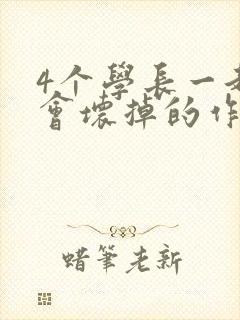 4个學長一起
會壞掉的作
蜡筆老新